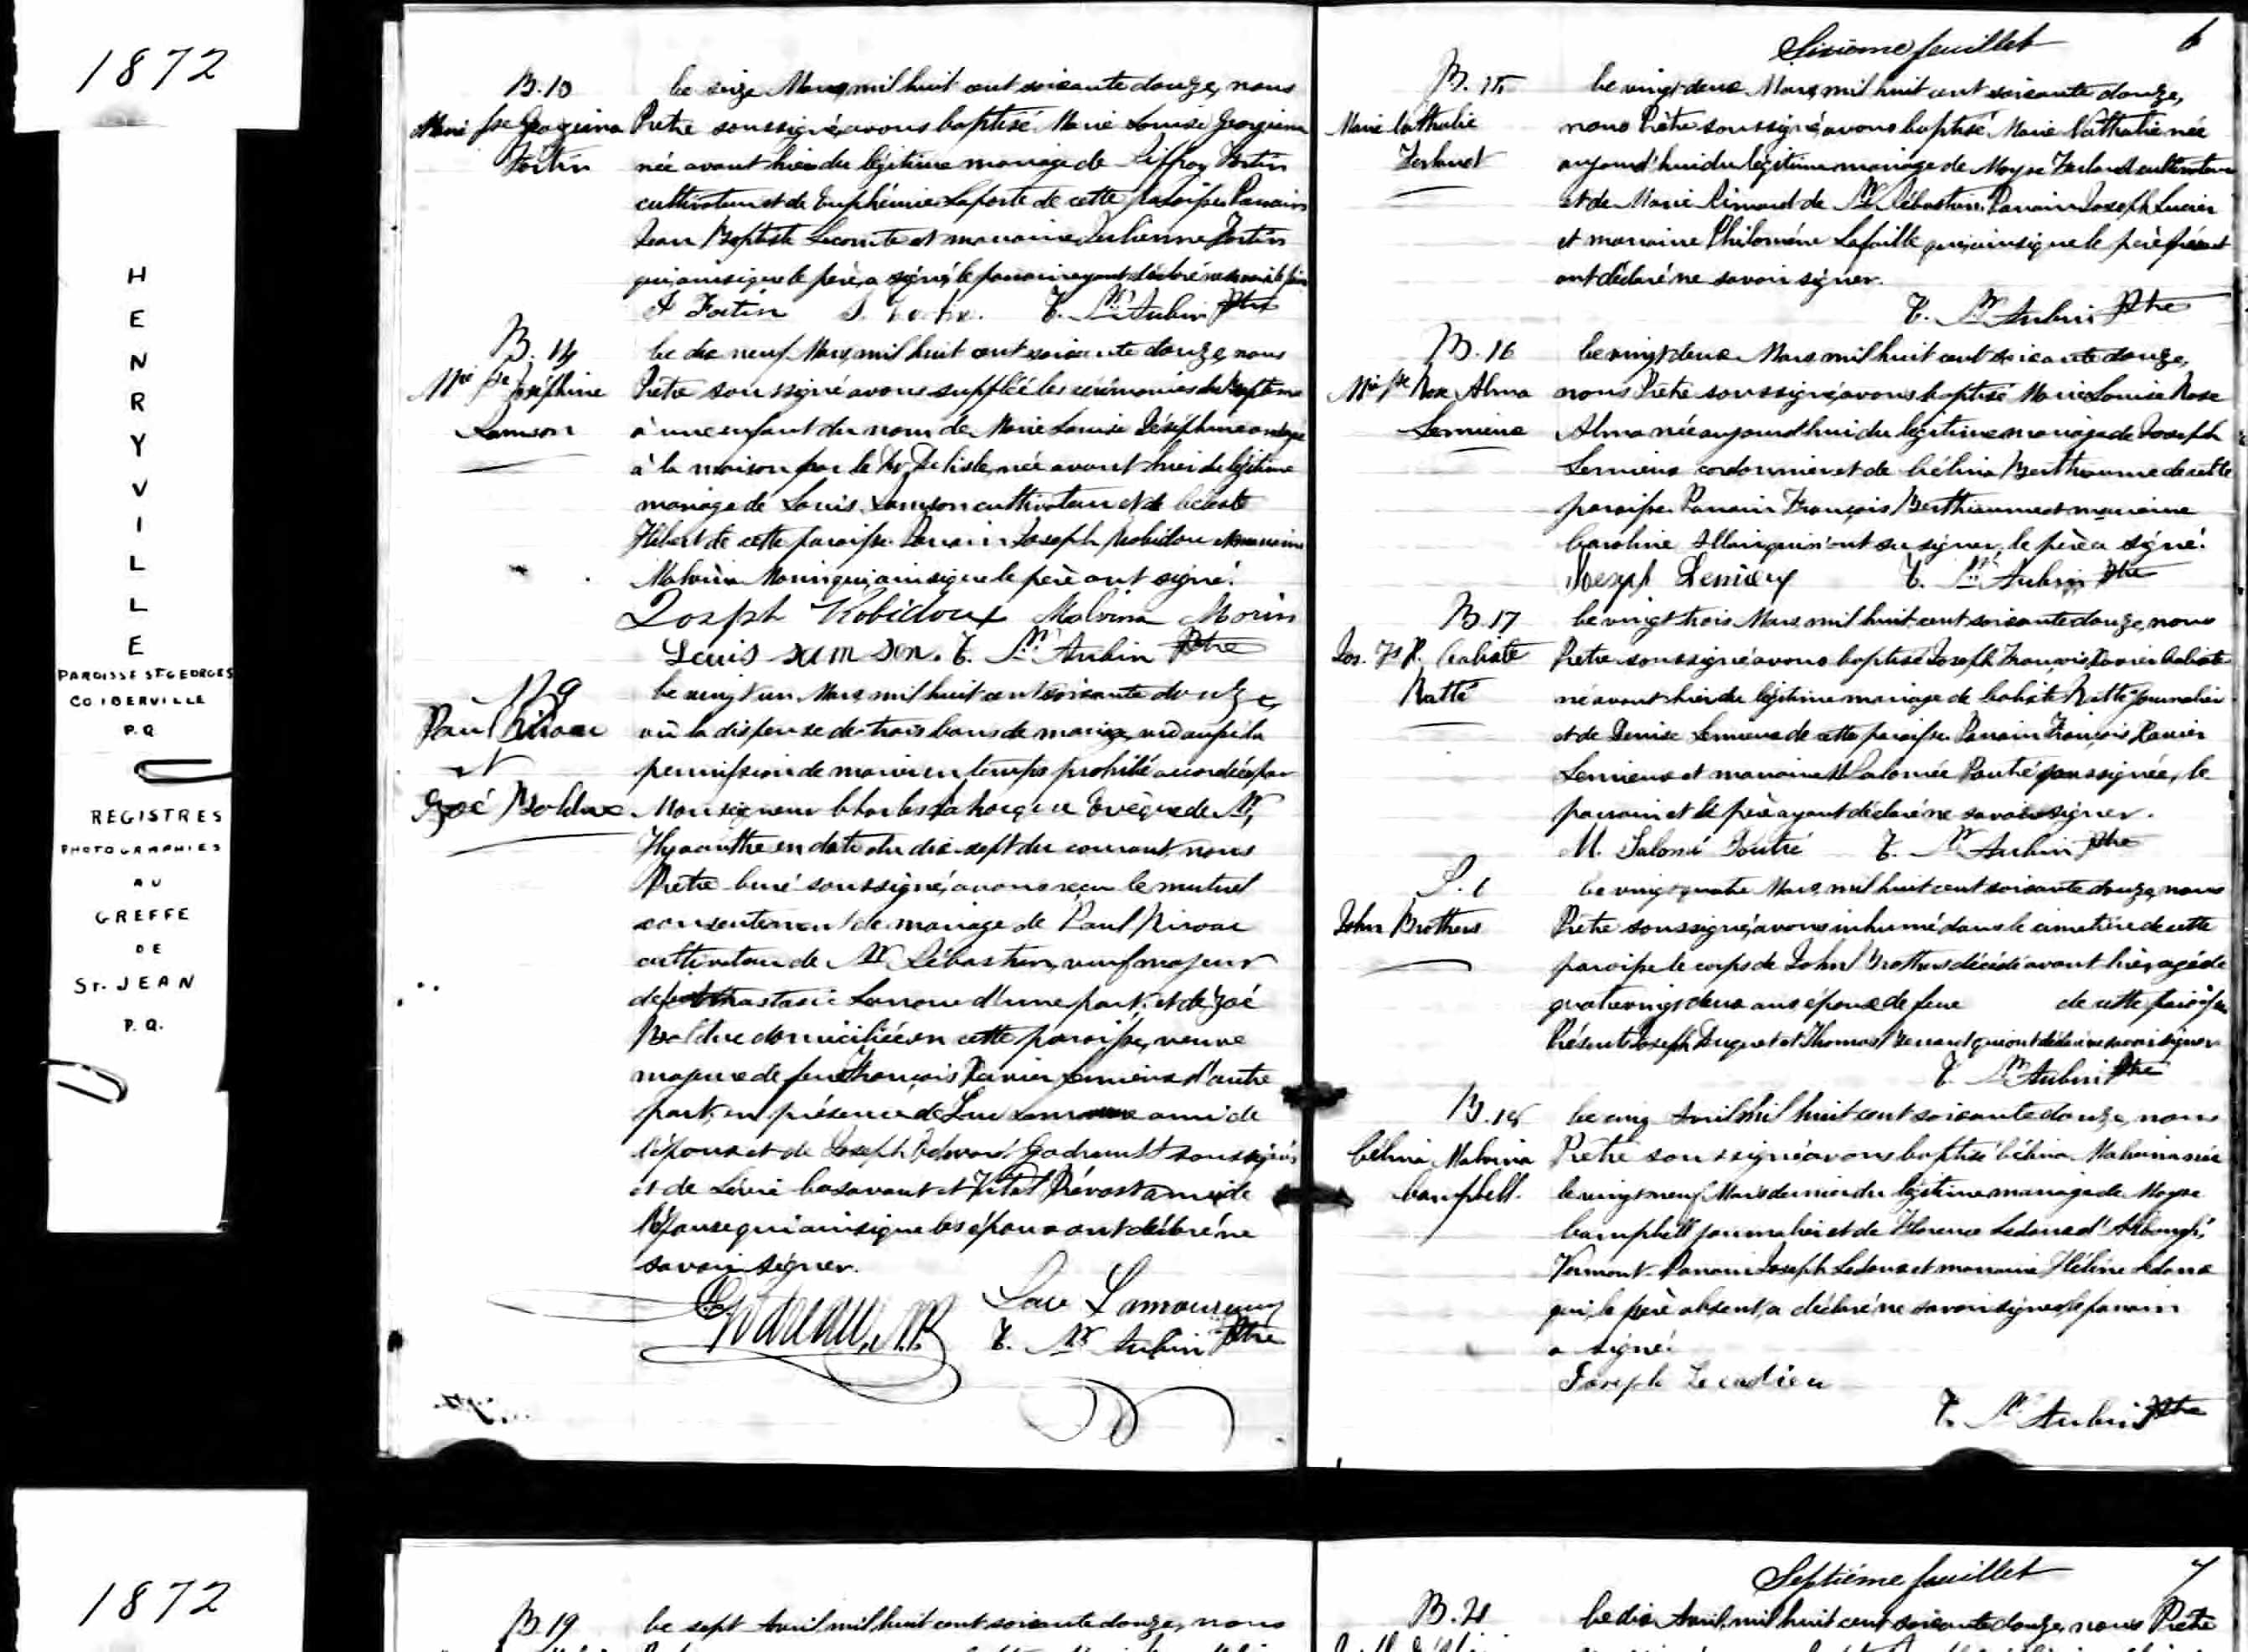 1872
HENRYVILLE
PAROISSE ST GEORGES
CO IBERVILLE
P.Q
REGISTRES
PHOTOGRAPHIES
AU
GREFFE
DE
ST. JEAN
P.Q.
B. 10
Marie Lse Georgiana
Fortin
Le seize Mars mil huit cent soixante douze, nous
Prêtre soussigné, avons baptisé Marie Louise Georgiana
née avant hier du légitime mariage de Fortin
cultivateur et de Euphémie Laporte de cette paroisse. Parrain
Jean Baptiste Lecomte et marraine Julienne Fortin
qui, ainsi que le père, a signé, le parrain ayant déclaré ne savoir le faire
Fortin T. St Aubin Ptre
B. 14
Mie Lse Joséphine
Samson
Le dix neuf Mars, mil huit cent soixante douze, nous
Prêtre soussigné avons suppléé les cérémonies du Baptême
à une enfant du nom de Marie Louise Joséphine ondoyée
à la maison par le Dr Delisle, née avant hier du légitime
mariage de Louis Samson cultivateur et de Céleste
Hébert de cette paroisse. Parrain Joseph Robidoux et marraine
Malvina Morin qui, ainsi que le père ont signé.
Joseph Robidoux Malvina Morin
Louis samson. T. St Aubin Ptre
Paul
et
Zoé Bolduc
Le vingt un Mars, mil huit cent soixante douze,
vû la dispense de trois bans de mariage, vû aussi la
permission de marier en temps prohibé accordée par
Monseigneur Charles LaRocque Evêque de St
Hyacinthe en date du dix-sept du courant, nous
Prêtre Curé soussigné, avons reçu le mutuel
consentement de mariage de Paul
cultivateur de St Sébastien, veuf majeur
de feue Anastasie d'une part; et de Zoé
Bolduc domiciliée en cette paroisse, veuve
majeure de feu François Xavier Lemieux d'autre
part, en présence de Luc Lamoureux ami de
l'époux et de Joseph soussignés
et de et Vital Prévost amis de
l'épouse qui ainsi que les époux ont déclaré ne
savoir signer.
Luc Lamoureux
T. St Aubin Ptre
Sixième feuillet 6
B. 15
Marie Nathalie
Ferland
Le vingt deux Mars, mil huit cent soixante douze,
nous Prêtre soussigné avons baptisé Marie Nathalie née
aujourd'hui du légitime mariage de Moyse Ferland cultivateur
et de Marie de St Sébastien. Parrain Joseph
et marraine Philomène Lafaille qui, ainsi que le père présent
ont déclaré ne savoir signer.
T. St Aubin Ptre
B. 16
Mie Lse Rose Alma
Lemieux
Le vingt deux Mars mil huit cent soixante douze,
nous Prêtre soussigné, avons baptisé Marie Louise Rose
Alma née aujourd'hui du légitime mariage de Joseph
Lemieux cordonnier et de Célina Berthiaume de cette
paroisse. Parrain François Berthiaume et marraine
Caroline qui n'ont su signer, le père a signé.
Joseph Lemieux T. St Aubin Ptre
B. 17
Jos. Fs X. Calixte
Ratté
Le vingt trois Mars, mil huit cent soixante douze, nous
Prêtre soussigné avons baptisé Joseph François Xavier Calixte
né avant hier du légitime mariage de Calixte Ratté journalier
et de Denise Lemieux de cette paroisse. Parrain François Xavier
Lemieux et marraine M. Salomée soussignée, le
parrain et le père ayant déclaré ne savoir signer.
M. Salomé T. St Aubin Ptre
S. 6
John Brothers
Le vingt quatre Mars, mil huit cent soixante douze, nous
Prêtre soussigné, avons inhumé dans le cimetière de cette
paroisse le corps de John Brothers décédé avant hier, agé de
quatre vingt deux ans époux de feue de cette paroisse
Présents Joseph Duquet et Thomas qui ont déclaré ne savoir signer
T. St Aubin Ptre
B. 18
Célina Malvina
Campbell.
Le cinq Avril mil huit cent soixante douze, nous
Prêtre soussigné avons baptisé Célina Malvina née
le vingt neuf Mars dernier du légitime mariage de Moyse
Campbell journalier et de Florence Ledoux
Vermont. Parrain Joseph Ledoux et marraine Hélène Ledoux
qui, le père absent, a déclaré ne savoir signer, le parrain
a signé.
Joseph
T. St Aubin Ptre
1872
B. 19
Le sept Avril mil huit cent soixante douze, nous
Septième feuillet 7
Le dix Avril, mil huit cent soixante douze, nous Prêtre